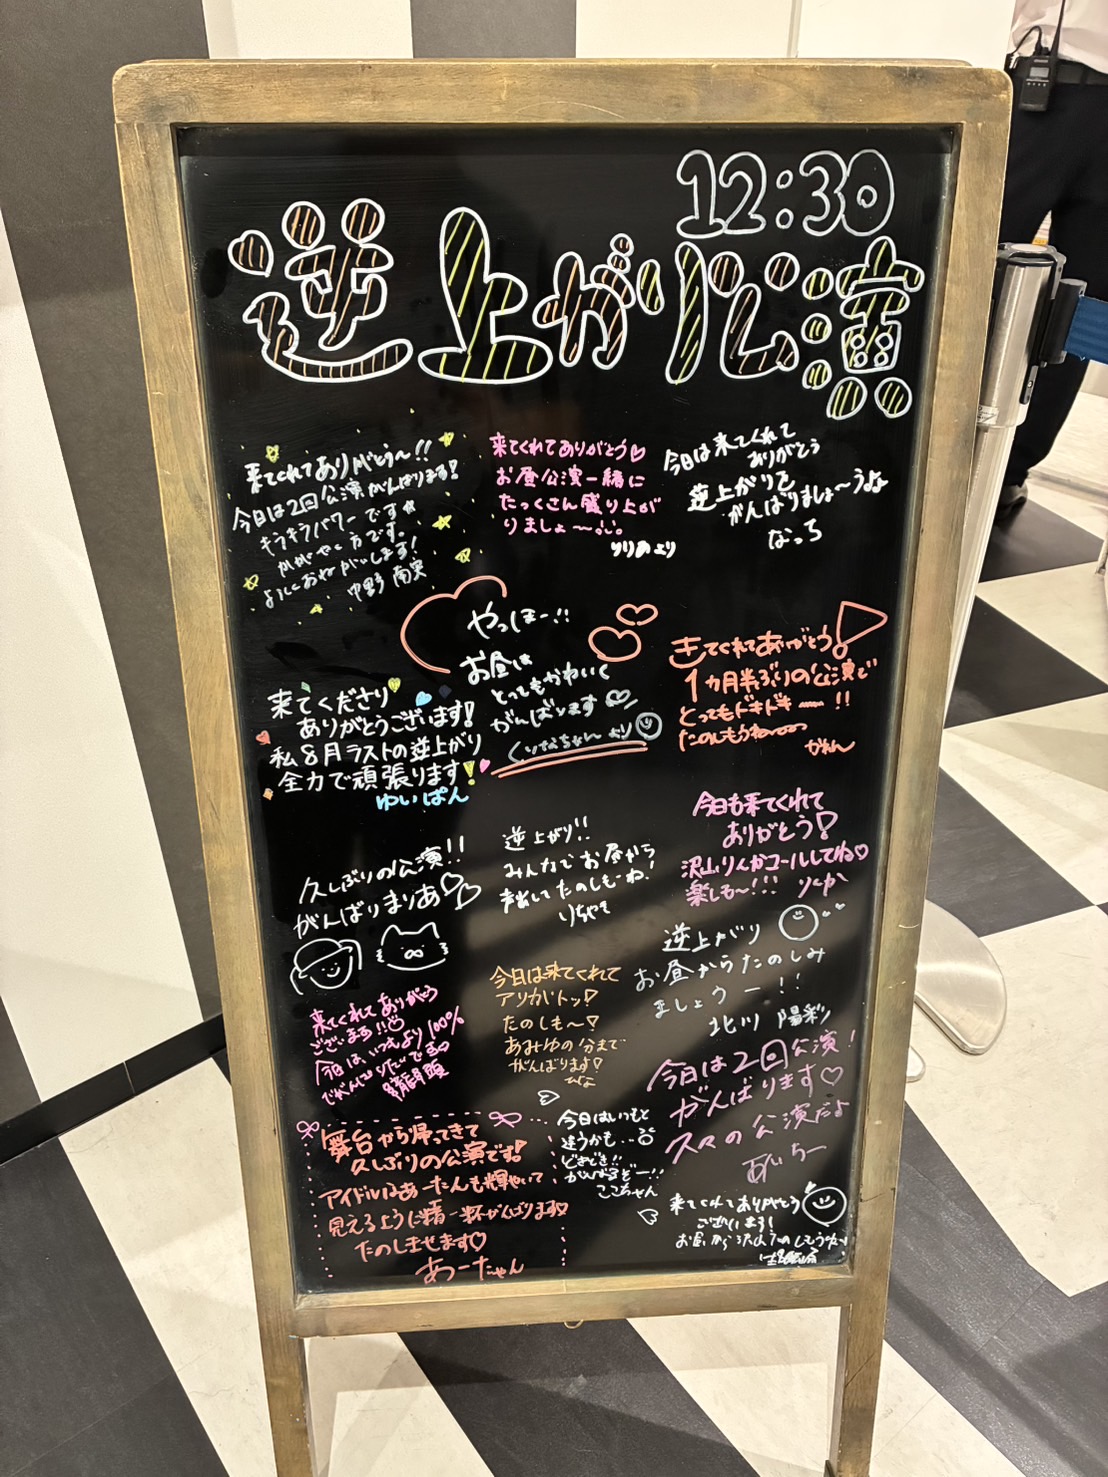 12:30
逆上がり公演
来てくれてありがとう〜!!
今日は2回公演がんばります!
キラキラパワーです☆
かがやく方です。
よろしくおねがいします!
来てくれてありがとう♡
お昼公演一緒に
たっくさん盛り上が
りましょ〜
りりあより
今日は来てくれて
ありがとう
逆上がりを
がんばりましょ〜うね
なっち
やっほー!!
お昼は
とってもかわいく
がんばります♡
より
きてくれてありがとう!
1ヵ月半ぶりの公演で
とってもドキドキー!!
たのしもうね
かれん
来てくださり
ありがとうございます!
私8月ラストの逆上がり
全力で頑張ります!
ゆいぱん
今日も来てくれて
ありがとう!
沢山りんかコールしてね♡
楽しも〜!!! りんか
逆上がり!!
みんなでお昼から
声出してたのしもーね!
久しぶりの公演!!
がんばりまりあ♡♡
逆上がり
お昼からたのしみ
ましょうー!!
北川 陽彩
今日は来てくれて
アリガトッ!
たのしも〜!
あみゆの分まで
がんばります!
来てくれてありがとう
ございます!!
今日はいつもより100%
今日は2回公演!
がんばります♡
久々の公演だよ
あいちー
今日はいつもと
違うかも‥
どきどき!!
がんばるぞー!!
ここちゃん
舞台から帰ってきて
久しぶりの公演です!
アイドルはあーたんも輝やいて
見えるように精一杯がんばります♡
たのしませます♡
あーたん
来てくれてありがとう
ございます!
お昼から沢山たのしもうね